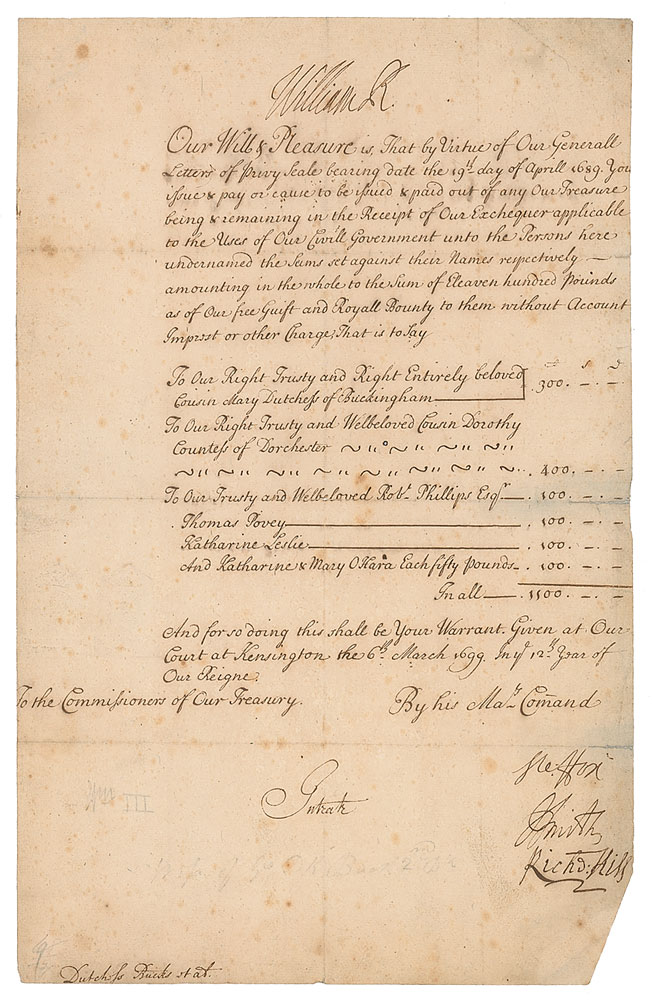 William R.
Our Will & Pleasure is, That by Virtue of Our Generall
Letters of Privy Seale bearing date the 19th day of Aprill 1689. You
issue & pay or cause to be issued & paid out of any Our Treasure
being & remaining in the Receipt of Our Exchequer applicable
to the Uses of Our Civill Government unto the Persons here
undernamed the Sums set against their Names respectively —
amounting in the whole to the Sum of Eleaven hundred Pounds
as of Our free Guift and Royall Bounty to them without Account
Imprest or other Charge, That is to Say
To Our Right Trusty and Right Entirely beloved
Cousin Mary Dutchess of Buckingham — 300. – . –
To Our Right Trusty and Welbeloved Cousin Dorothy
Countess of Dorchester
. 400. – . –
To Our Trusty and Welbeloved Robt. Phillips Esqr. — . 100. – . –
. Thomas Povey — . 100. – . –
Katharine Leslie — . 100. – . –
And Katharine & Mary O Hara Each fifty Pounds – . 100. – . –
In all — . 1100. – –
And for so doing this shall be Your Warrant. Given at Our
Court at Kensington the 6th. March 1699. In ye 12th Year of
Our Reigne.
To the Commissioners of Our Treasury. By his Mats. Comand
Ste. Fox
Intratr
J Smith
Richd: Hill
Dutchess Bucks et al.